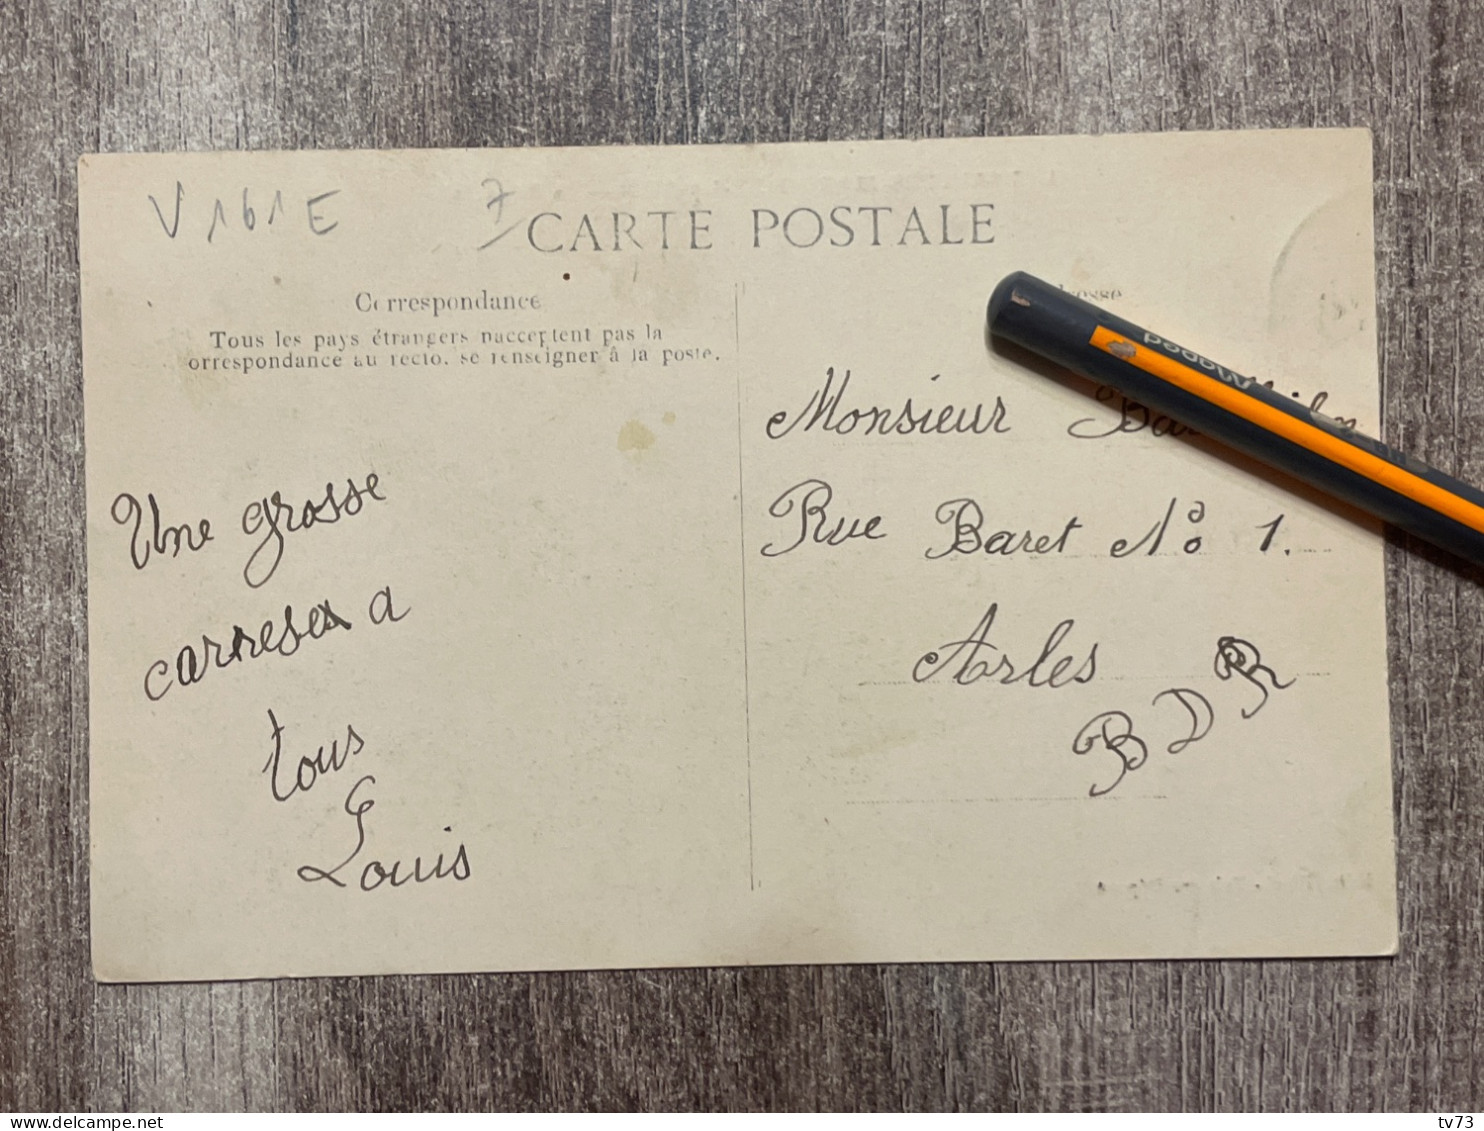 V161E 7
CARTE POSTALE
Correspondance
Tous les pays étrangers nacceptent pas la
orrespondance au recto. se renseigner à la poste.
Une grosse
carresex a
tous
Louis
dresse
Monsieur
Rue Baret No 1.
Arles
B D R
Maped
delcampe.net
tv73